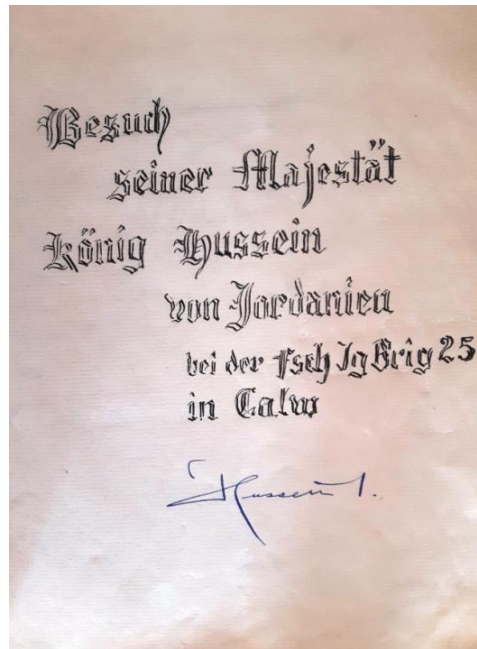 Besuch
seiner Majestät
König Hussein
von Jordanien
bei der Fsch Jg Brig 25
in Calw
Hussein I.